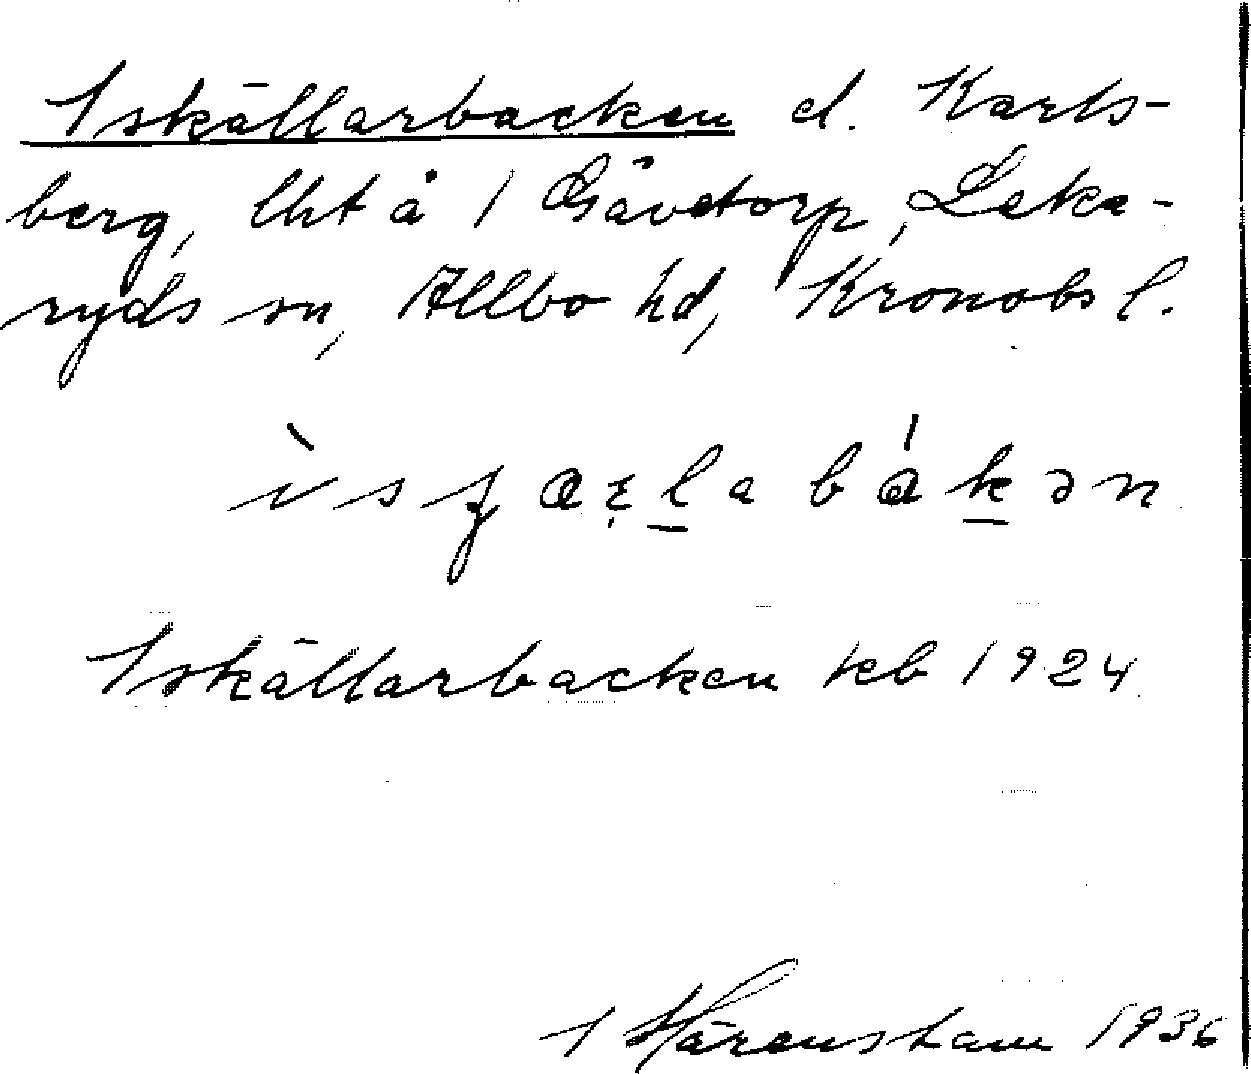 Iskällarbacken el. Karls-
berg, lht å 1 Gåvetorp, Leka-
ryds sn, Allbo hd, Kronobs l.
Iskällarbacken kb 1924
I Härenstam 1936